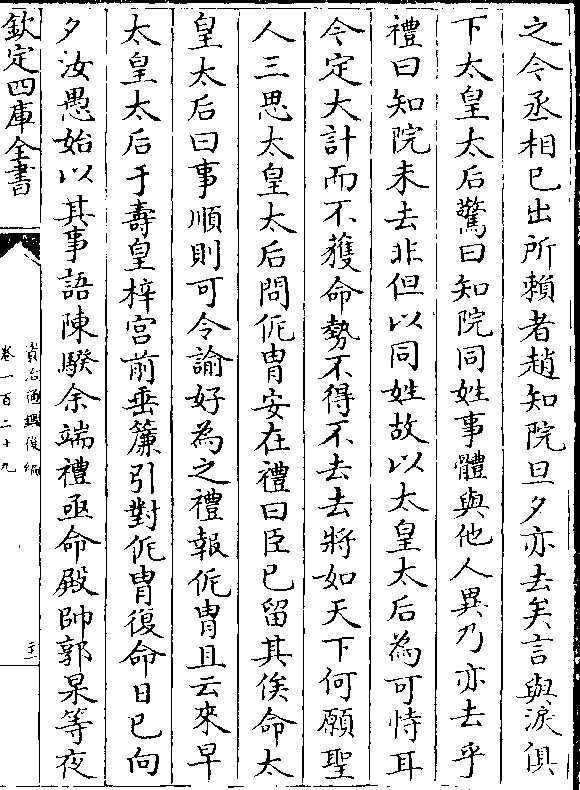 之令丞相已出所賴者趙知院旦夕亦去矣言與淚俱
下太皇太后驚曰知院同姓事體與他人異乃亦去乎
禮曰知院未去非但以同姓故以太皇太后為可恃耳
今定大計而不獲命勢不得不去去將如天下何願聖
人三思太皇太后問侂胄安在禮曰臣已留其俟命太
皇太后曰事順則可令諭好為之禮報侂胄且云來早
太皇太后于壽皇梓宫前垂簾引對侂胄復命日已向
夕汝愚始以其事語陳騤余端禮亟命殿帥郭杲等夜
欽定四庫全書
資治通鑑後編
卷一百二十九